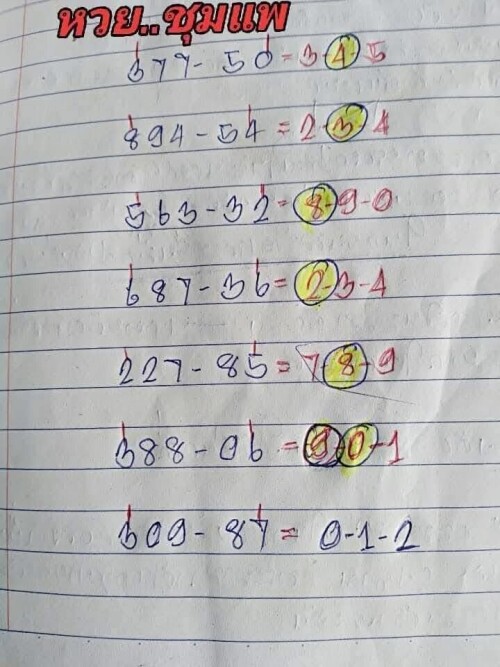 หวย..ชุมแพ
377-50=3-4-5
894-54=2-3-4
563-32=8-9-0
687-36=2-3-4
227-85=7-8-9
388-06=9-0-1
309-87=0-1-2